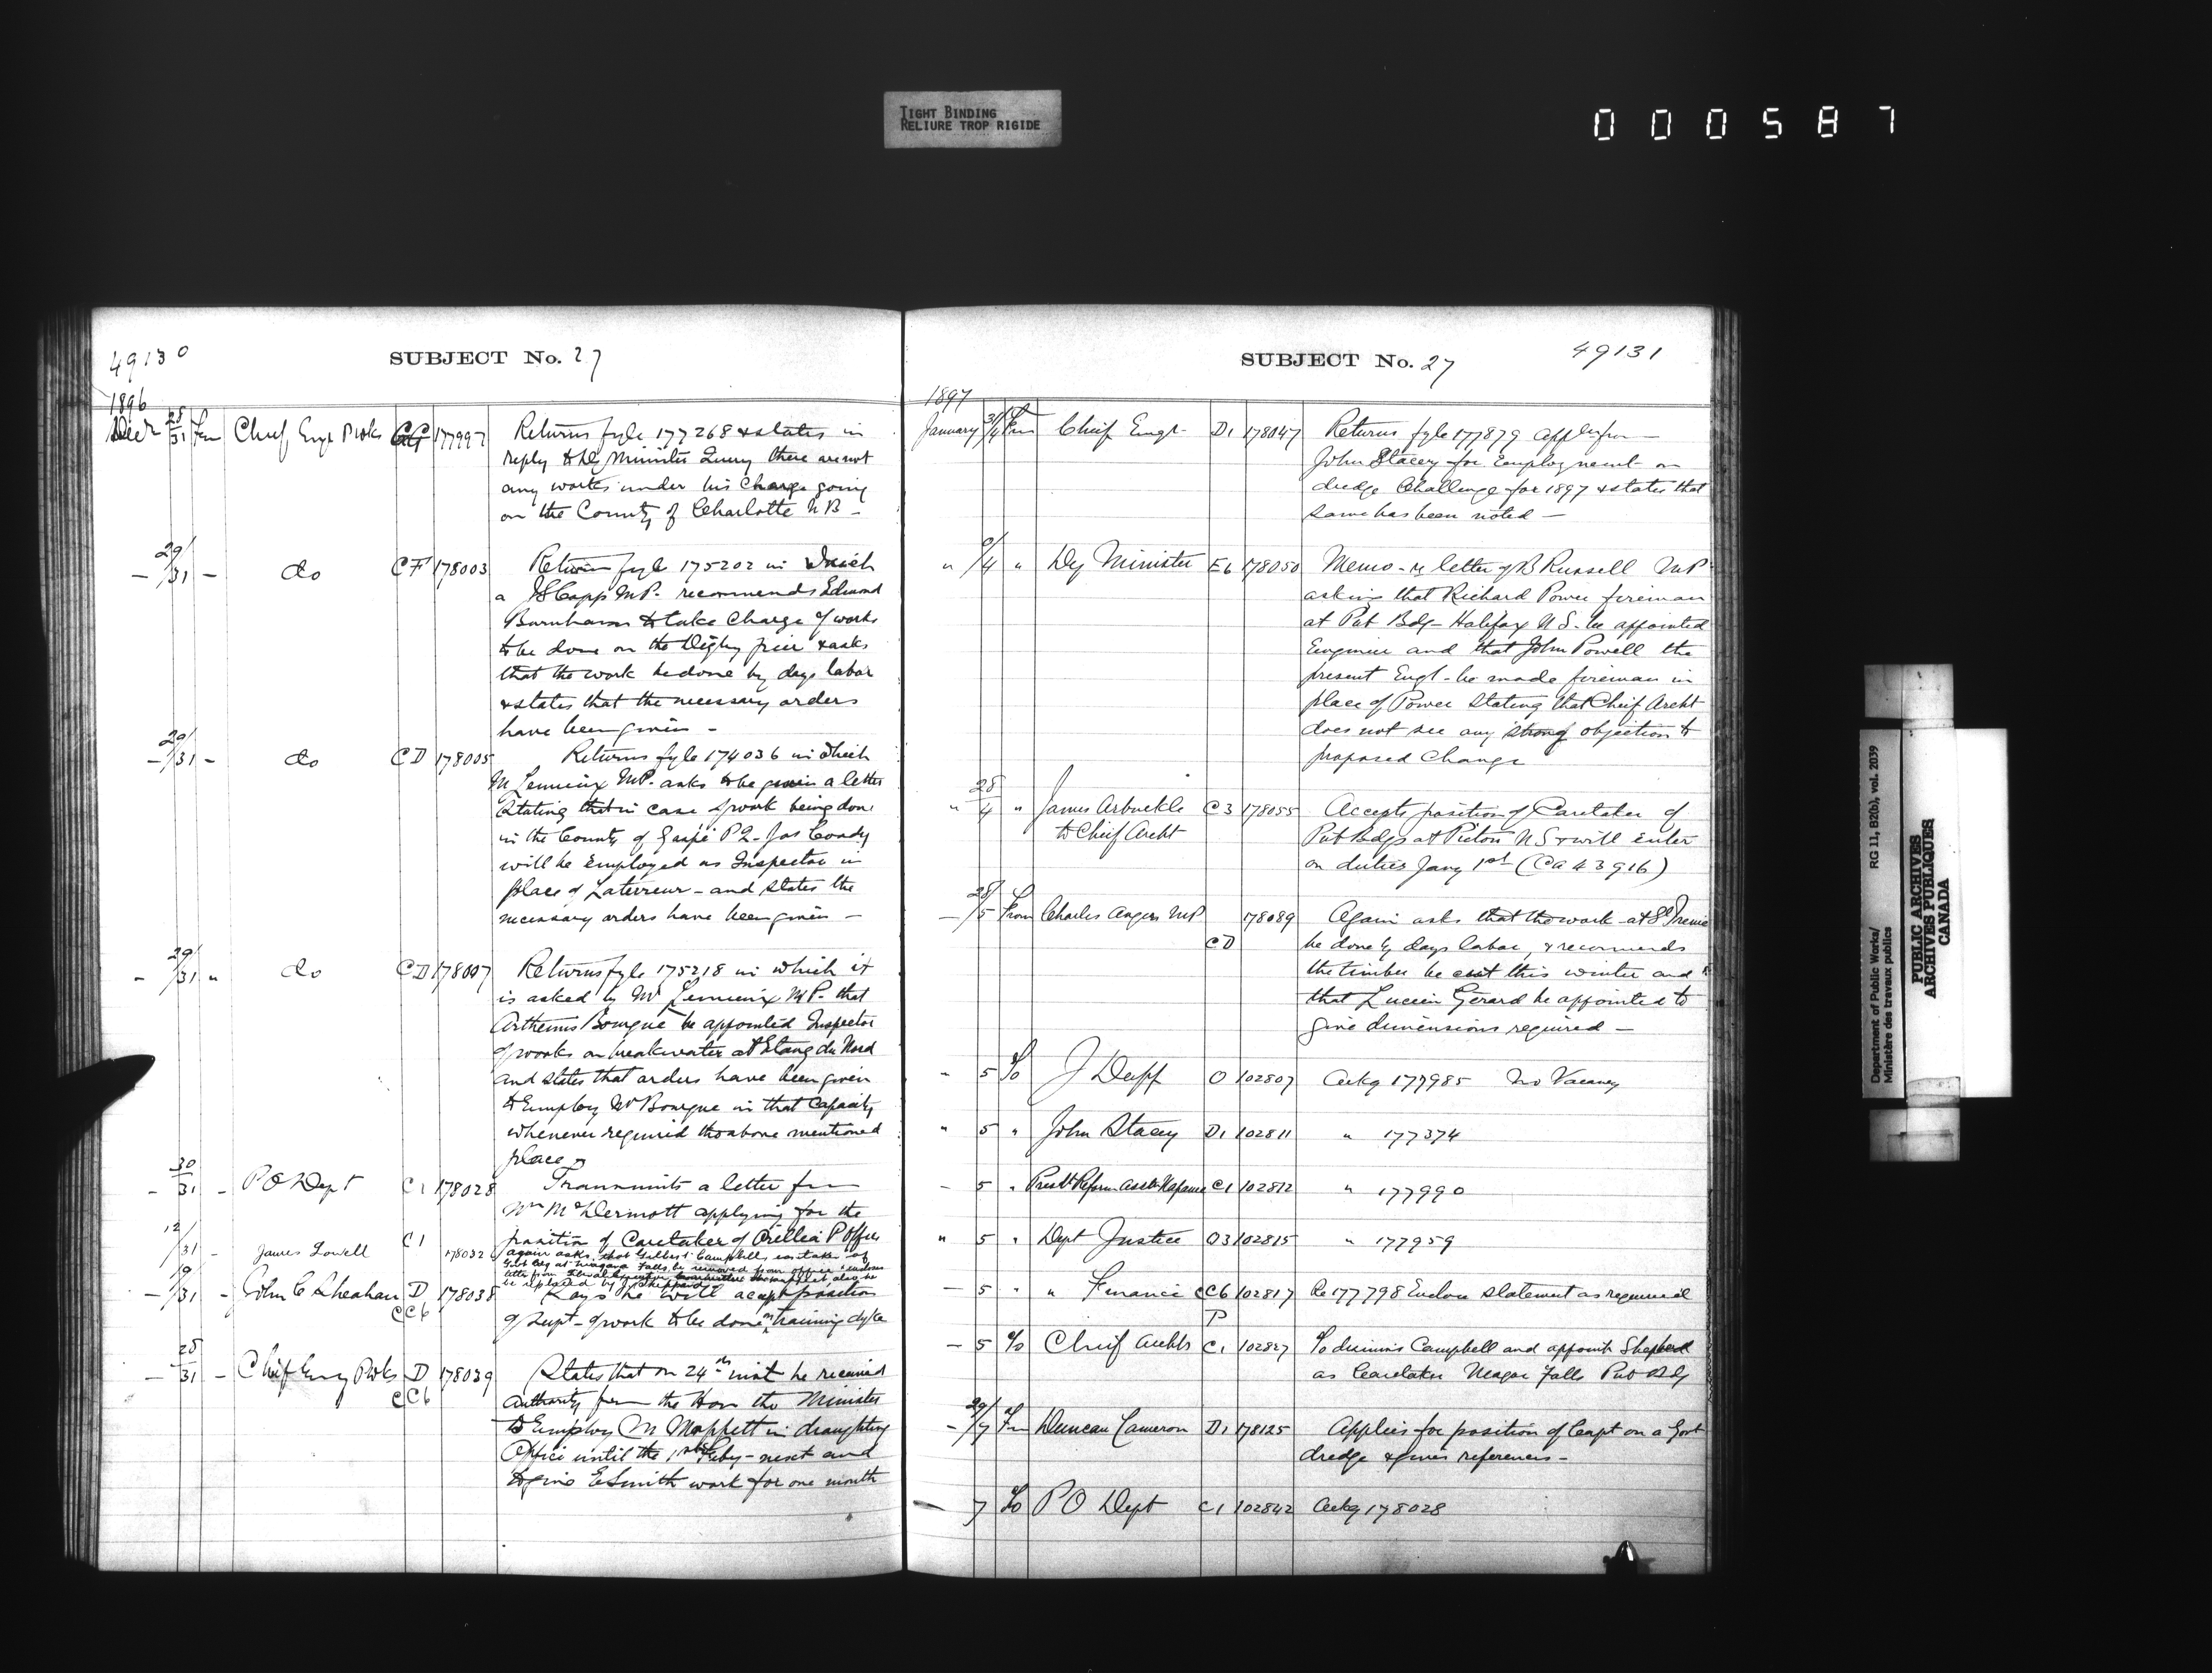 TIGHT BINDING
RELIURE TROP RIGIDE
000587
49130
SUBJECT No. 27
1896
Decr 28/31 Fm Chief Engr P Wks 177997 Returns fyle 177268 & states in
reply to Dy Minister Query there are not
any works under his charge going
on the County of Charlotte N B -
- 29/31 - do CF 178003 Return fyle 175202 in which
a Copp M.P. recommends Edmund
Burnham to take charge of works
to be done on the Digby pier & asks
that the work be done by days labor
& states that the necessary orders
have been given -
- 29/31 - do CD 178005 Returns fyle 174036 in which
M Lemieux M.P. asks to be given a letter
stating that in case of work being done
in the County of Gaspé P2 - Jas Coady
will be employed as Inspector in
place of Laterreur - and states the
necessary orders have been given -
- 29/31 " do CD 178007 Returns fyle 175218 in which it
is asked by Mr Lemieux M P. that
Arthemis Bourque be appointed Inspector
of works on breakwater at Etang du Nord
and states that orders have been given
to Employ Mr Bourque in that capacity
whenever required the above mentioned
place
- 30/31 - P O Dept C1 178028 Transmits a letter fm
Wm McDermott applying for the
position of Caretaker of Orillia P Office
12/31 - James Lowell C1 178032 again asks that Gilbert Campbell, caretaker of
Govt Bldg at Niagara Falls, be removed from office & encloses
letter from
be replaced by Sheppard
- 19/31 - John C Sheahan D CC6 178038 Says he will accept position
of Supt - of work to be done in training dyke
- 28/31 - Chief Eng P Wks D CC6 178039 States that on 24th inst he received
authority from the Hon the Minister
to Employ M Moffett in draughting
Office until the 1st Feby - next and
to give E Smith work for one month
SUBJECT No. 27
49131
1897
January 31/4 Fm Chief Engr. D1 178047 Returns fyle 177879 appln from
John Stacey for Employment on
dredge Challenge for 1897 & states that
same has been noted -
" /4 " Dy Minister E6 178050 Memo - re letter of B Russell M P
asking that Richard Power fireman
at Pub Bdg - Halifax N S - be appointed
Engineer and that John Powell the
present Engr - be made fireman in
place of Power stating that Cheif Archt
does not see any strong objection to
proposed change
" 28/4 " James Arbuckle C3 178055 Accepts position of Caretaker of
to Chief Archt Pub Bdgs at Pictou N S & will enter
on duties Jany 1st (Ca 43916)
- 28/5 From Charles Angers M P CD 178089 Again asks that the work at St Irenie
be done by days labor, & recommends
the timber be cut this winter and
that Lucien Gerard be appointed to
give dimensions required -
- 5 To J Duff O 102807 Ackg 177985 No Vacancy
" 5 " John Stacey D1 102811 " 177374
- 5 " Presdt Reform Assn Napanee C1 102812 " 177990
" 5 " Dept Justice O3 102815 " 177959
- 5 " " Finance CC6 102817 Re 177798 Enclose statement as required
P
- 5 To Chief Archt C1 102827 To dismiss Campbell and appoint Shepherd
as Caretaker Niagar Falls Pub Bdg
- 29/7 Fm Duncan Cameron D1 178125 Applies for position of Capt on a Govt
dredge & gives references -
- 7 To P O Dept C1 102842 Ackg 178028
Department of Public Works/ RG 11, B2(b), vol. 2039
Ministère des travaux publics
PUBLIC ARCHIVES
ARCHIVES PUBLIQUES
CANADA